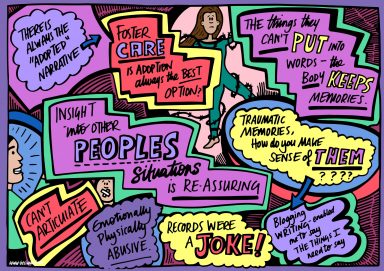 THERE IS
ALWAYS THE
"ADOPTED"
NARRATIVE
FOSTER
CARE
IS ADOPTION
always THE BEST
OPTION?
THE things they
CAN'T PUT INTO
WORDS - the
BODY KEEPS
MEMORIES.
INSIGHT
into OTHER
PEOPLES
situations
IS RE-ASSURING
TRAUMATIC
MEMORIES,
How do you MAKE
SENSE of THEM
????
CAN'T
ARTICULATE
Emotionally
Physically
ABUSIVE.
RECORDS WERE
A JOKE!
Blogging
WRITING - enabled
me to say
THE THINGS I
need to say